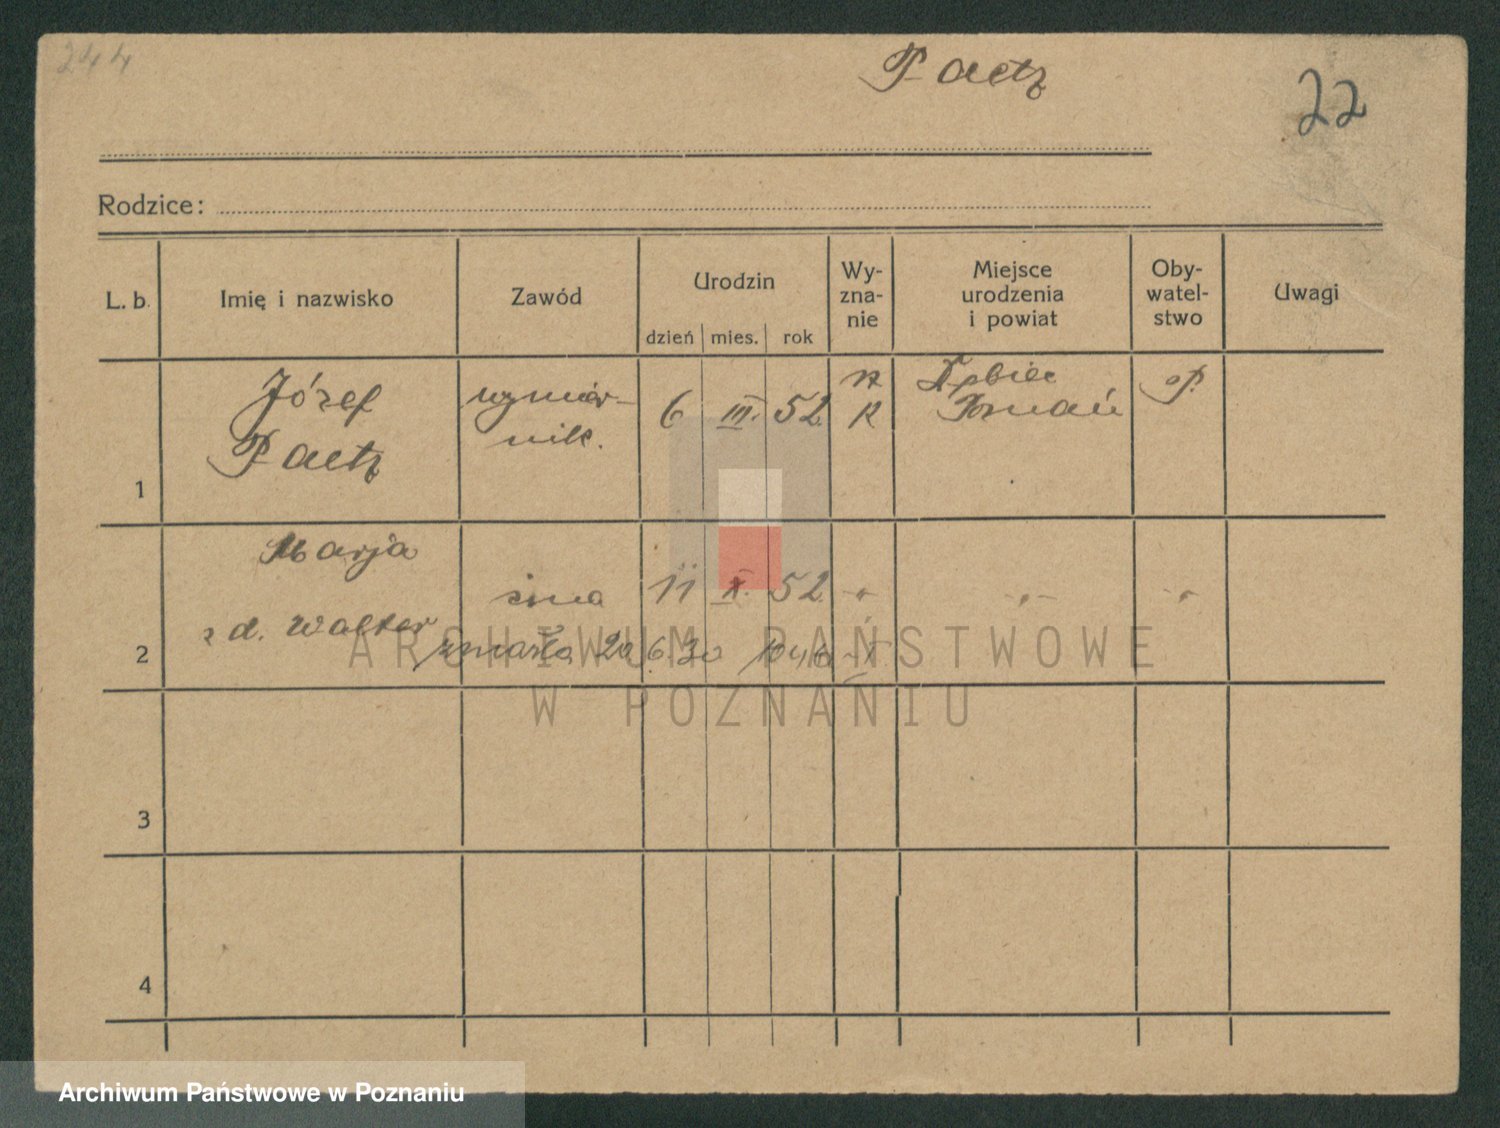 244
Paetz
22
Rodzice:
L. b.
Imię i nazwisko
Zawód
Urodzin
dzień mies. rok
Wy-
zna-
nie
Miejsce
urodzenia
i powiat
Oby-
watel-
stwo
Uwagi
1
Józef
Paetz
wymiar-
nik.
6 III. 52
R
K
Dębiec
Poznań
p.
2
Marja
z d. Walter
żona
11 X. 52 -"- -"- -"-
zmarła 20 6.30
3
4
ARCHIWUM PAŃSTWOWE
W POZNANIU
Archiwum Państwowe w Poznaniu